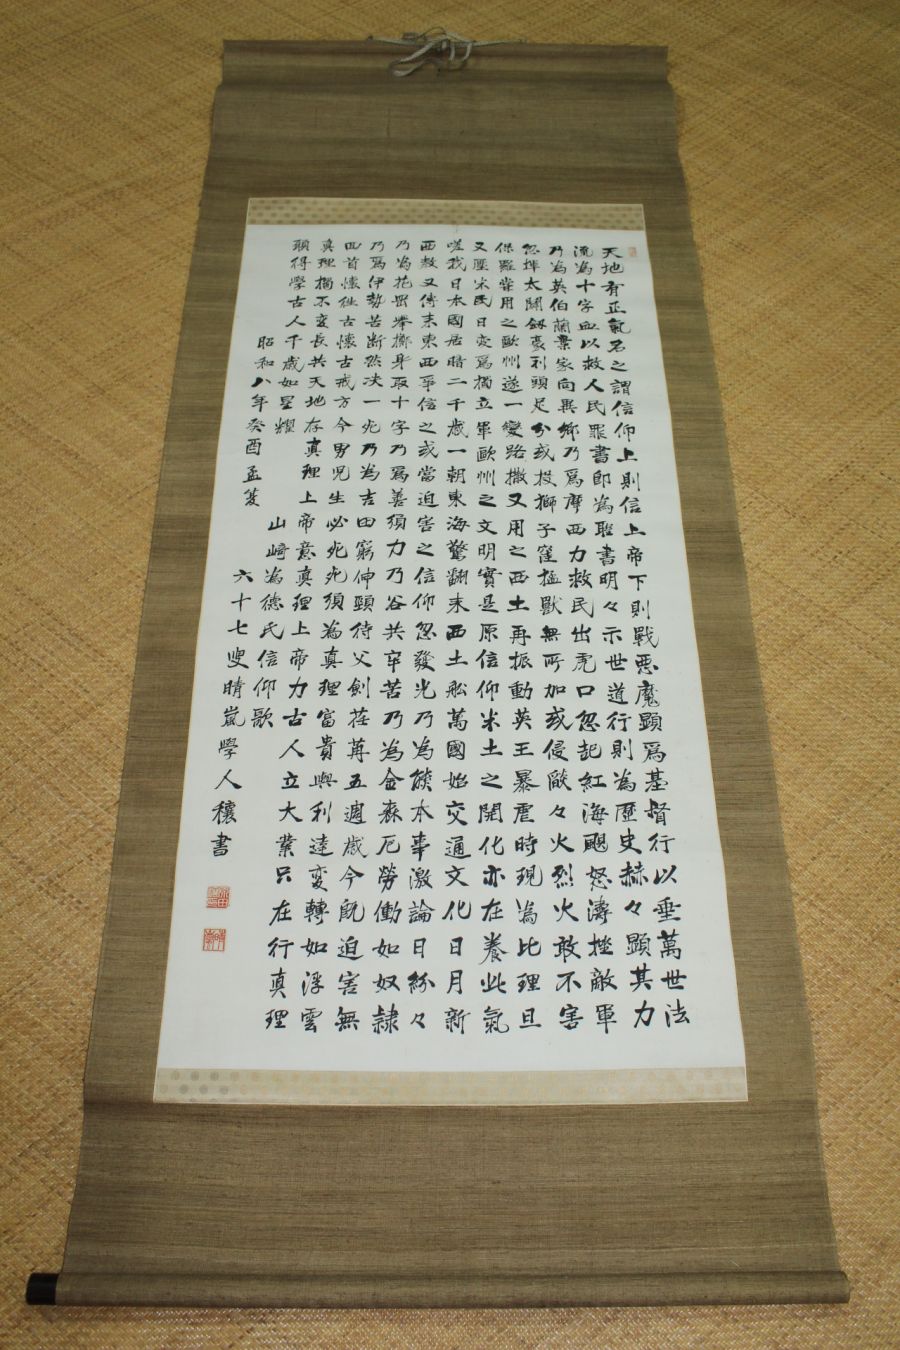 天地有正氣名之謂信仰上則信上帝下則戰惡魔顕為基督行以垂萬世法
流為十字血以救人民罪書即為聖書明々示世道行則為歴史赫々顕其力
乃為英伯蘭棄家向異郷乃為摩西力救民出虎口忽記紅海颶怒濤挫敵軍
忽揮太闢劔豪利頭足分或投獅子窪猛獣無所加或侵燄々火烈火敢不害
保羅葉用之歐州遂一變路撒又用之西土再振動英王暴虐時現為比理旦
又壓米民日変為獨立軍歐州之文明實是原信仰米土之開化亦在養此氣
嗟我日本國居暗二千歳一朝東海驚翻来西土舩萬國始交通文化日月新
西教又傳来東西爭信之或當迫害之信仰忽發光乃為熊本事激論日紛々
乃為花岡挙擲身取十字乃為善須力乃谷共辛苦乃為金森厄勞働如奴隷
乃爲伊勢苦断然决一死乃為吉田窮伸頸待父劍荏苒五週歳今既迫害無
回首懐往古懐古戒方今男児生必死死須為真理富貴與利達変轉如浮雲
真理獨不変長共天地存真理上帝意真理上帝力古人立大業只在行真理
頭得學古人千歳如星燿
昭和八年癸酉孟夏 山崎為德氏信仰歌
六十七叟晴嵐學人穰書